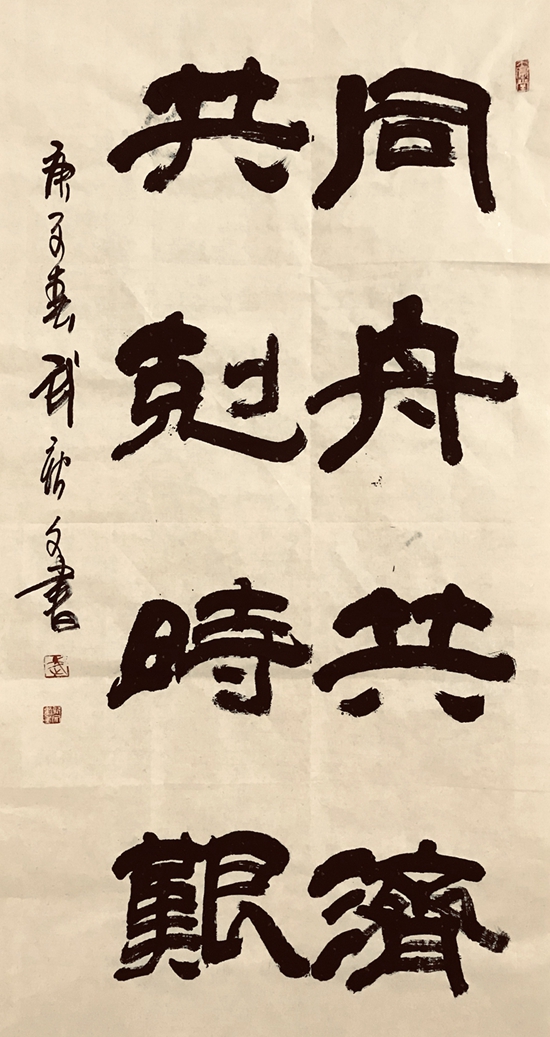 同舟共濟
共剋時艱
庚子春武新文書